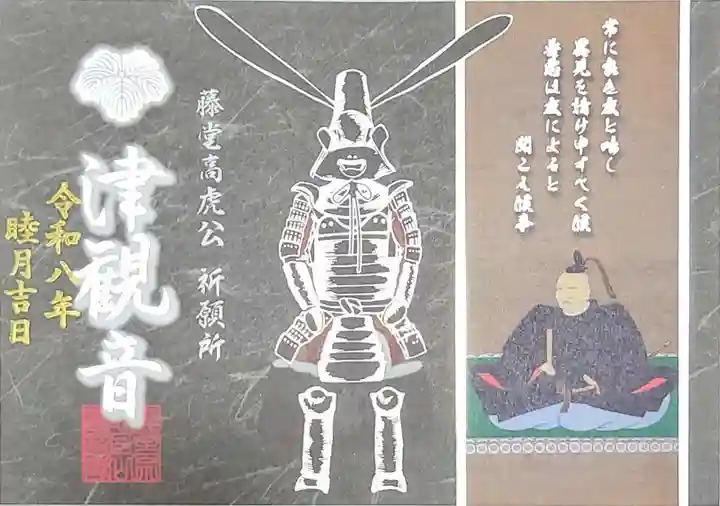 常に良き友と咄し
異見を請け申すべく候
善悪は友によると
聞こえ候事
藤堂高虎公 祈願所
津観音
令和八年
睦月吉日